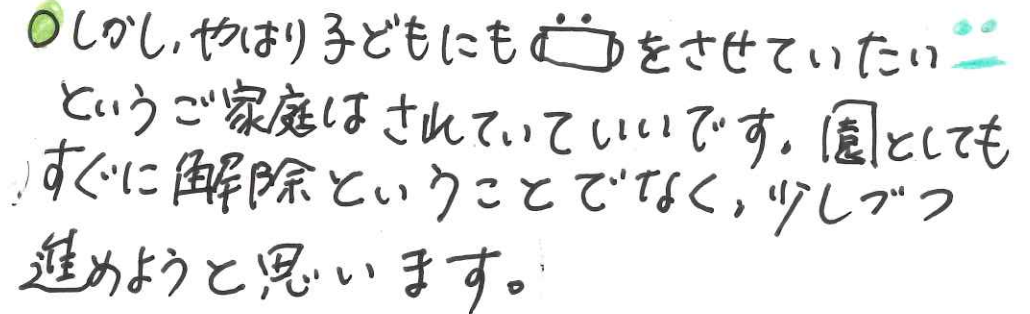 しかし、やはり子どもにもをさせていたい
というご家庭はされていていいです。園としても
すぐに解除ということでなく、少しづつ
進めようと思います。